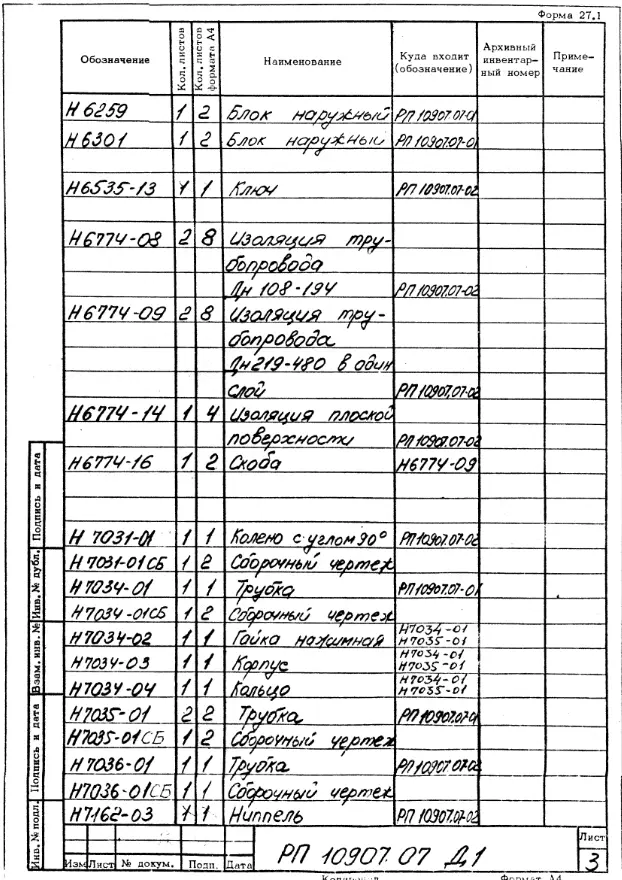 Форма 27.1
Обозначение Кол. листов Кол. листов формата А4 Наименование Куда входит (обозначение) Архивный инвентар-ный номер Приме-чание
Н 6259 1 2 Блок наружный РП 10907.07-01
Н 6301 1 2 Блок наружный РП 10907.07-01
Н6535-13 1 1 Ключ РП 10907.07-02
Н6774-08 2 8 Изоляция тру-
бопровода
Дн 108-194 РП 10907.07-02
Н6774-09 2 8 Изоляция тру-
бопровода
Дн 219-480 в один
слой РП 10907.07-02
Н6774-14 1 4 Изоляция плоской
поверхности РП 10907.07-02
Н6774-16 1 2 Скоба Н6774-09
Н 7031-01 1 1 Колено с углом 90° РП 10907.07-02
Н 7031-01СБ 1 2 Сборочный чертеж
Н 7034-01 1 1 Трубка РП 10907.07-01
Н7034-01СБ 1 2 Сборочный чертеж
Н7034-02 1 1 Гайка нажимная Н7034-01
Н7035-01
Н7034-03 1 1 Корпус Н7034-01
Н7035-01
Н7034-04 1 1 Кольцо Н7034-01
Н7035-01
Н7035-01 2 2 Трубка РП 10907.07-01
Н7035-01СБ 1 2 Сборочный чертеж
Н7036-01 1 1 Трубка РП 10907.07-02
Н7036-01СБ 1 1 Сборочный чертеж
Н7162-03 1 1 Ниппель РП 10907.07-02
Инв. № подл. Подпись и дата Взам. инв. № Инв. № дубл. Подпись и дата
РП 10907.07 Д1
Лист
3
Изм Лист № докум. Подп. Дата
Копировал Формат А4